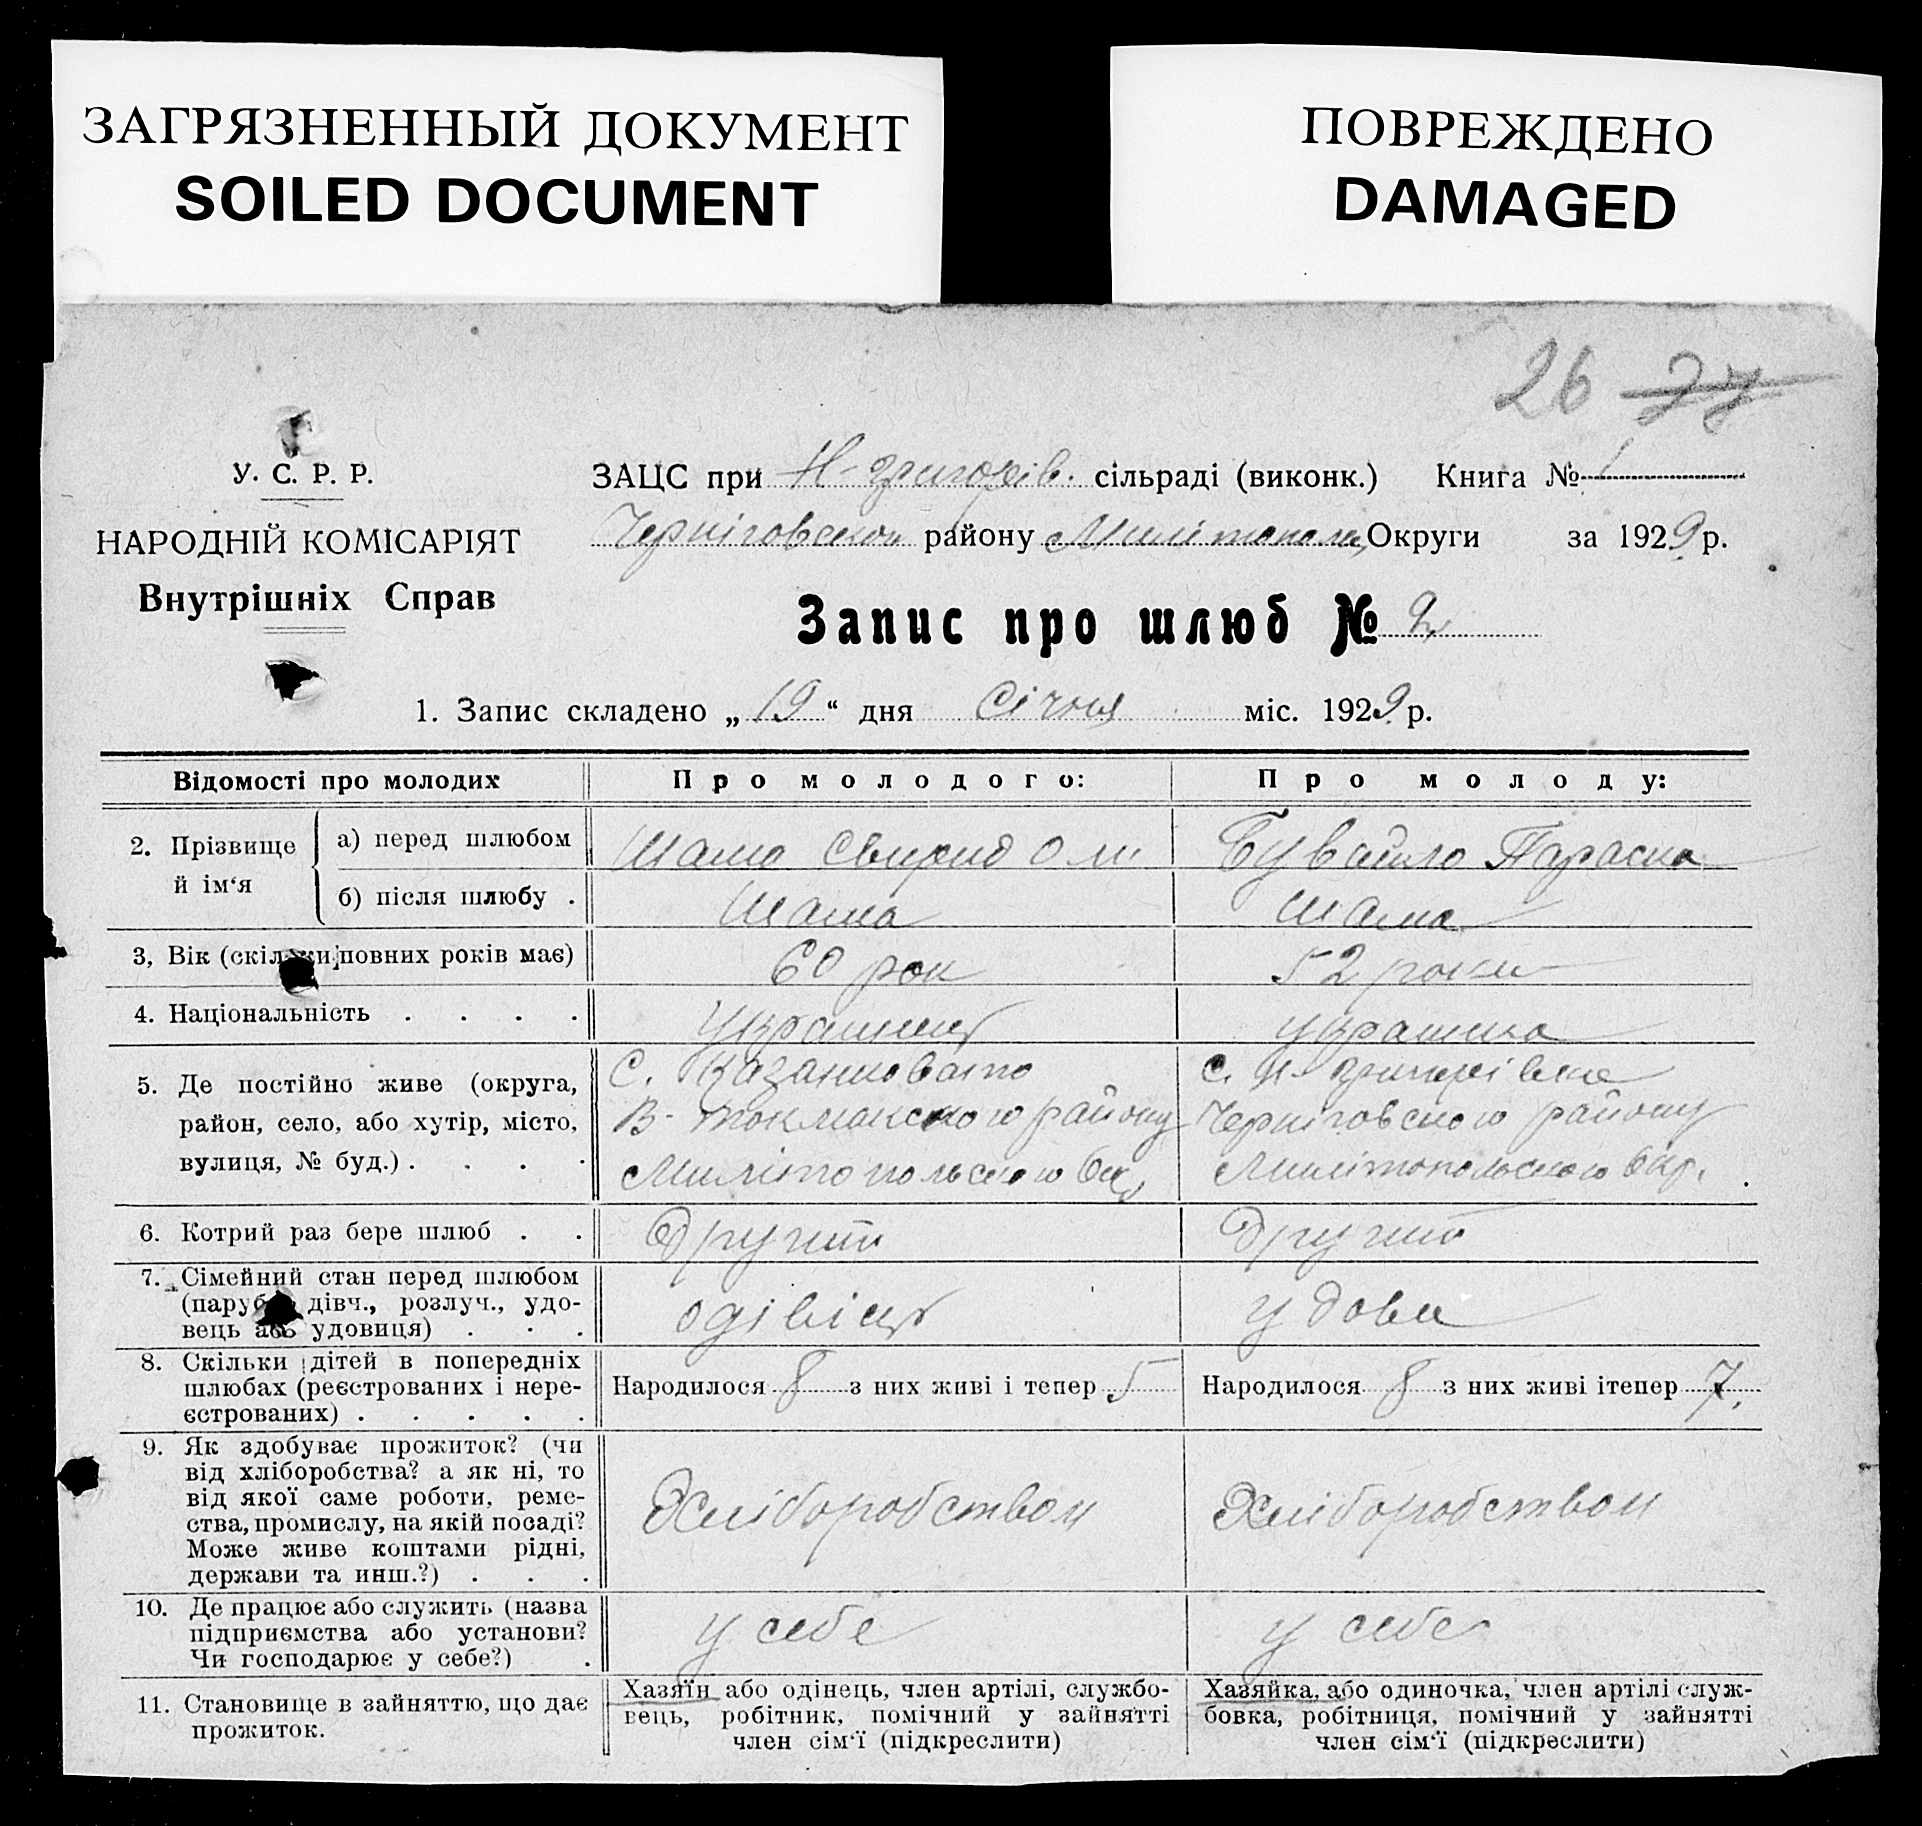 ЗАГРЯЗНЕННЫЙ ДОКУМЕНТ
SOILED DOCUMENT
ПОВРЕЖДЕНО
DAMAGED
26 77
У. С. Р. Р.
НАРОДНІЙ КОМІСАРІЯТ
Внутрішніх Справ
ЗАЦС при Н-григорів. сільраді (виконк.) Книга № 1
Черніговском району Милітопол. Округи за 1929 р.
Запис про шлюб № 2
1. Запис складено „19“ дня Січня міс. 1929 р.
Відомості про молодих
Про молодого:
Про молоду:
2. Прізвище й ім'я
а) перед шлюбом
Шамо Свирид
Бувайло Параска
б) після шлюбу .
Шама
Шама
3, Вік (скільки повних років має)
60 рок
52 роки
4. Національність . . . .
Українец
українка
5. Де постійно живе (округа,
район, село, або хутір, місто,
вулиця, № буд.) . . . .
С. Казанковато
В-токмакского району
Милітопольского Окр
с. Н-григорівка
Черніговского району
Милітопольского Окр.
6. Котрий раз бере шлюб . .
Другий
Другий
7. Сімейний стан перед шлюбом
(паруб., дівч., розлуч., удо-
вець або удовиця) . . .
одівец
удова
8. Скільки дітей в попередніх
шлюбах (реєстрованих і нере-
єстрованих) . . . . .
Народилося 8 з них живі і тепер 5
Народилося 8 з них живі ітепер 7.
9. Як здобуває прожиток? (чи
від хліборобства? а як ні, то
від якої саме роботи, реме-
ства, промислу, на якій посаді?
Може живе коштами рідні,
держави та инш.?) . . .
Хліборобством
Хліборобством
10. Де працює або служить (назва
підприємства або установи?
Чи господарює у себе?) .
у себе
у себе
11. Становище в зайняттю, що дає
прожиток.
Хазяїн або одінець, член артілі, службо-
вець, робітник, помічний у зайнятті
член сім'ї (підкреслити)
Хазяйка, або одиночка, член артілі служ-
бовка, робітниця, помічний у зайнятті
член сім'ї (підкреслити)